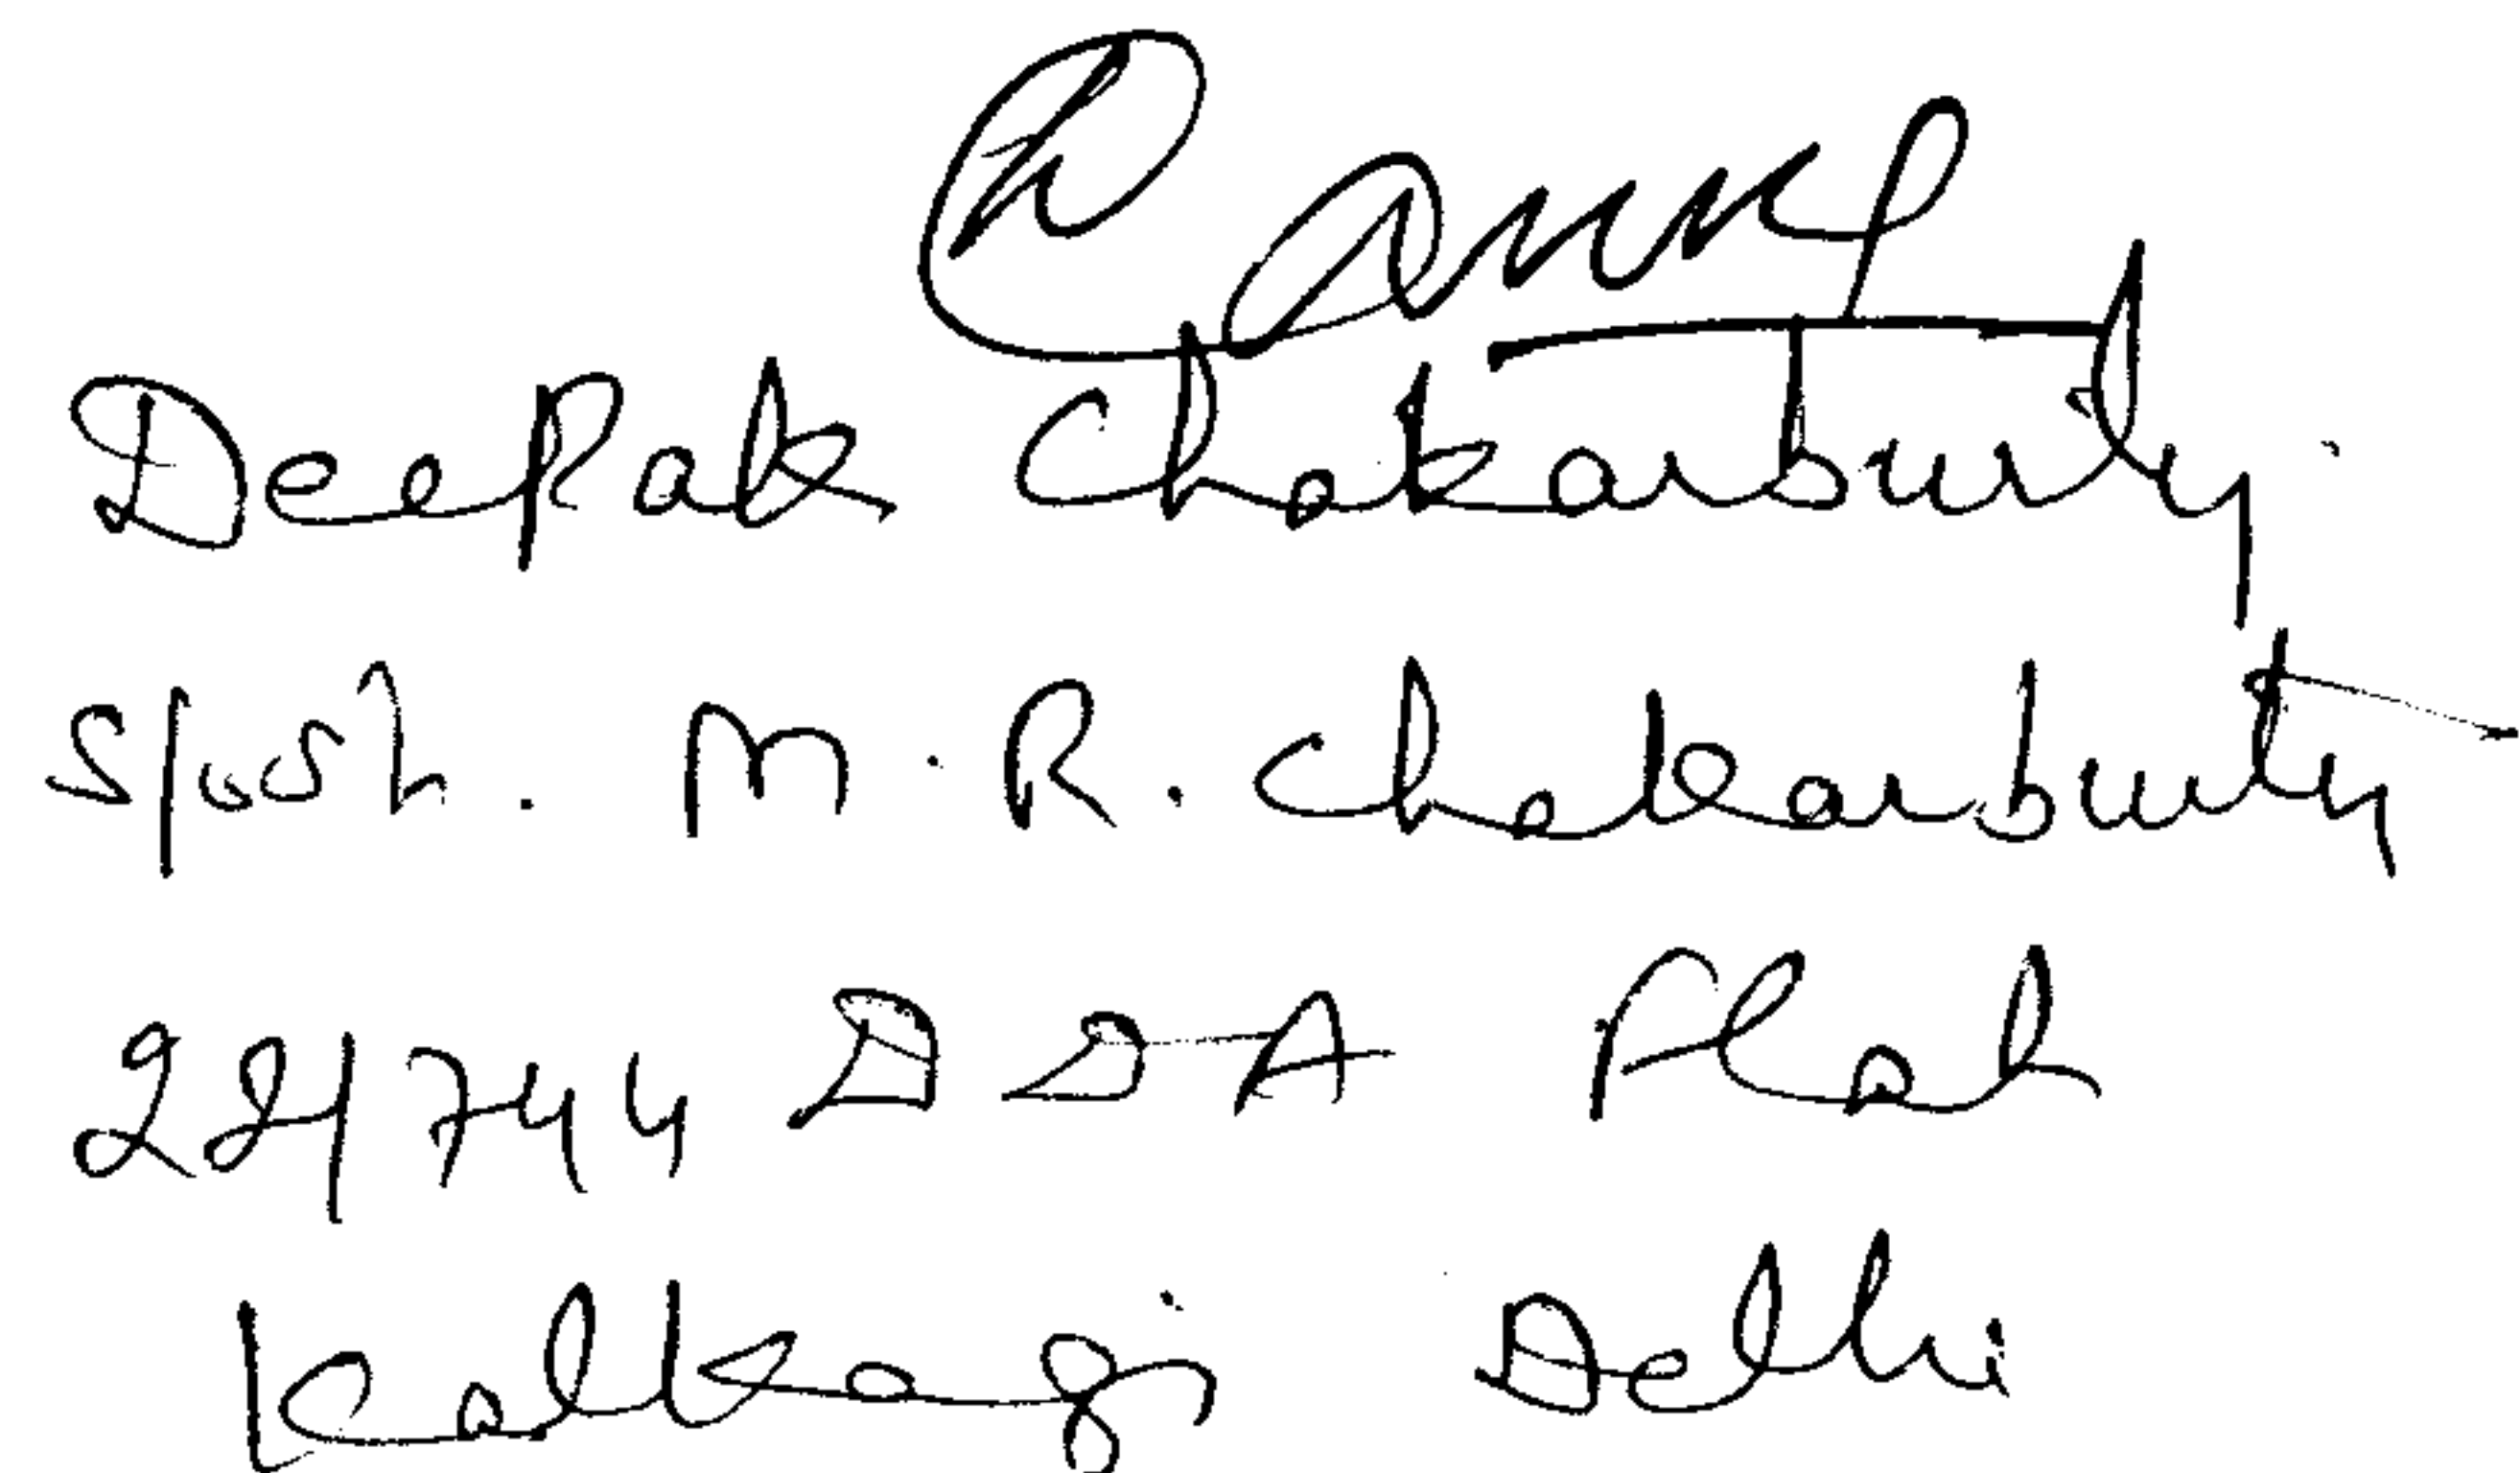 Deepak Chakarburty
S/o Sh. M.R. Chakarburty
28/744 DDA Flat
Kalkagi Delhi